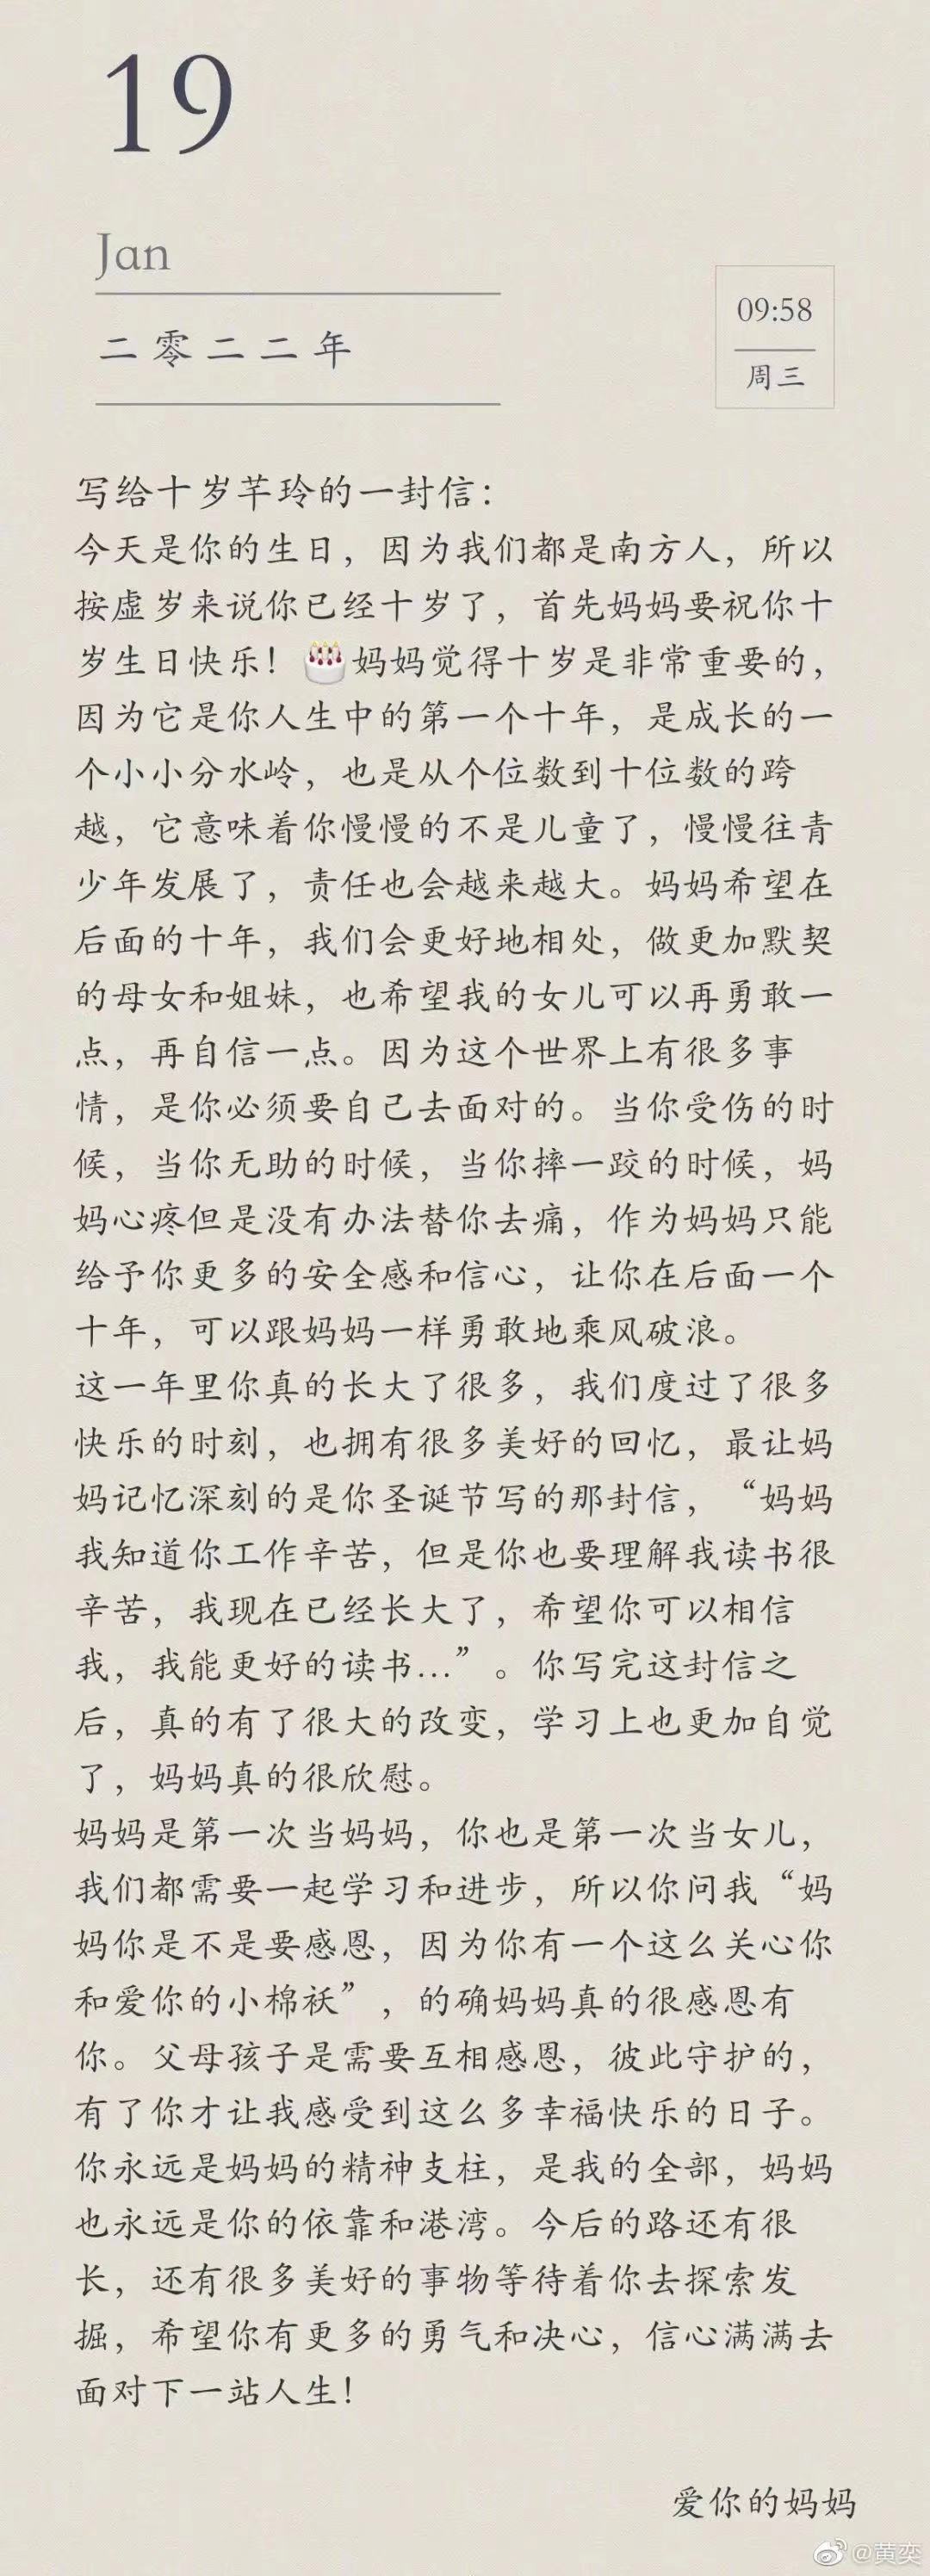 19
Jan
二零二二年
09:58
周三
写给十岁芊玲的一封信：
今天是你的生日，因为我们都是南方人，所以
按虚岁来说你已经十岁了，首先妈妈要祝你十
岁生日快乐！🎂妈妈觉得十岁是非常重要的，
因为它是你人生中的第一个十年，是成长的一
个小小分水岭，也是从个位数到十位数的跨
越，它意味着你慢慢的不是儿童了，慢慢往青
少年发展了，责任也会越来越大。妈妈希望在
后面的十年，我们会更好地相处，做更加默契
的母女和姐妹，也希望我的女儿可以再勇敢一
点，再自信一点。因为这个世界上有很多事
情，是你必须要自己去面对的。当你受伤的时
候，当你无助的时候，当你摔一跤的时候，妈
妈心疼但是没有办法替你去痛，作为妈妈只能
给予你更多的安全感和信心，让你在后面一个
十年，可以跟妈妈一样勇敢地乘风破浪。
这一年里你真的长大了很多，我们度过了很多
快乐的时刻，也拥有很多美好的回忆，最让妈
妈记忆深刻的是你圣诞节写的那封信，“妈妈
我知道你工作辛苦，但是你也要理解我读书很
辛苦，我现在已经长大了，希望你可以相信
我，我能更好的读书...”。你写完这封信之
后，真的有了很大的改变，学习上也更加自觉
了，妈妈真的很欣慰。
妈妈是第一次当妈妈，你也是第一次当女儿，
我们都需要一起学习和进步，所以你问我“妈
妈你是不是要感恩，因为你有一个这么关心你
和爱你的小棉袄”，的确妈妈真的很感恩有
你。父母孩子是需要互相感恩，彼此守护的，
有了你才让我感受到这么多幸福快乐的日子。
你永远是妈妈的精神支柱，是我的全部，妈妈
也永远是你的依靠和港湾。今后的路还有很
长，还有很多美好的事物等待着你去探索发
掘，希望你有更多的勇气和决心，信心满满去
面对下一站人生！
爱你的妈妈
@黄奕